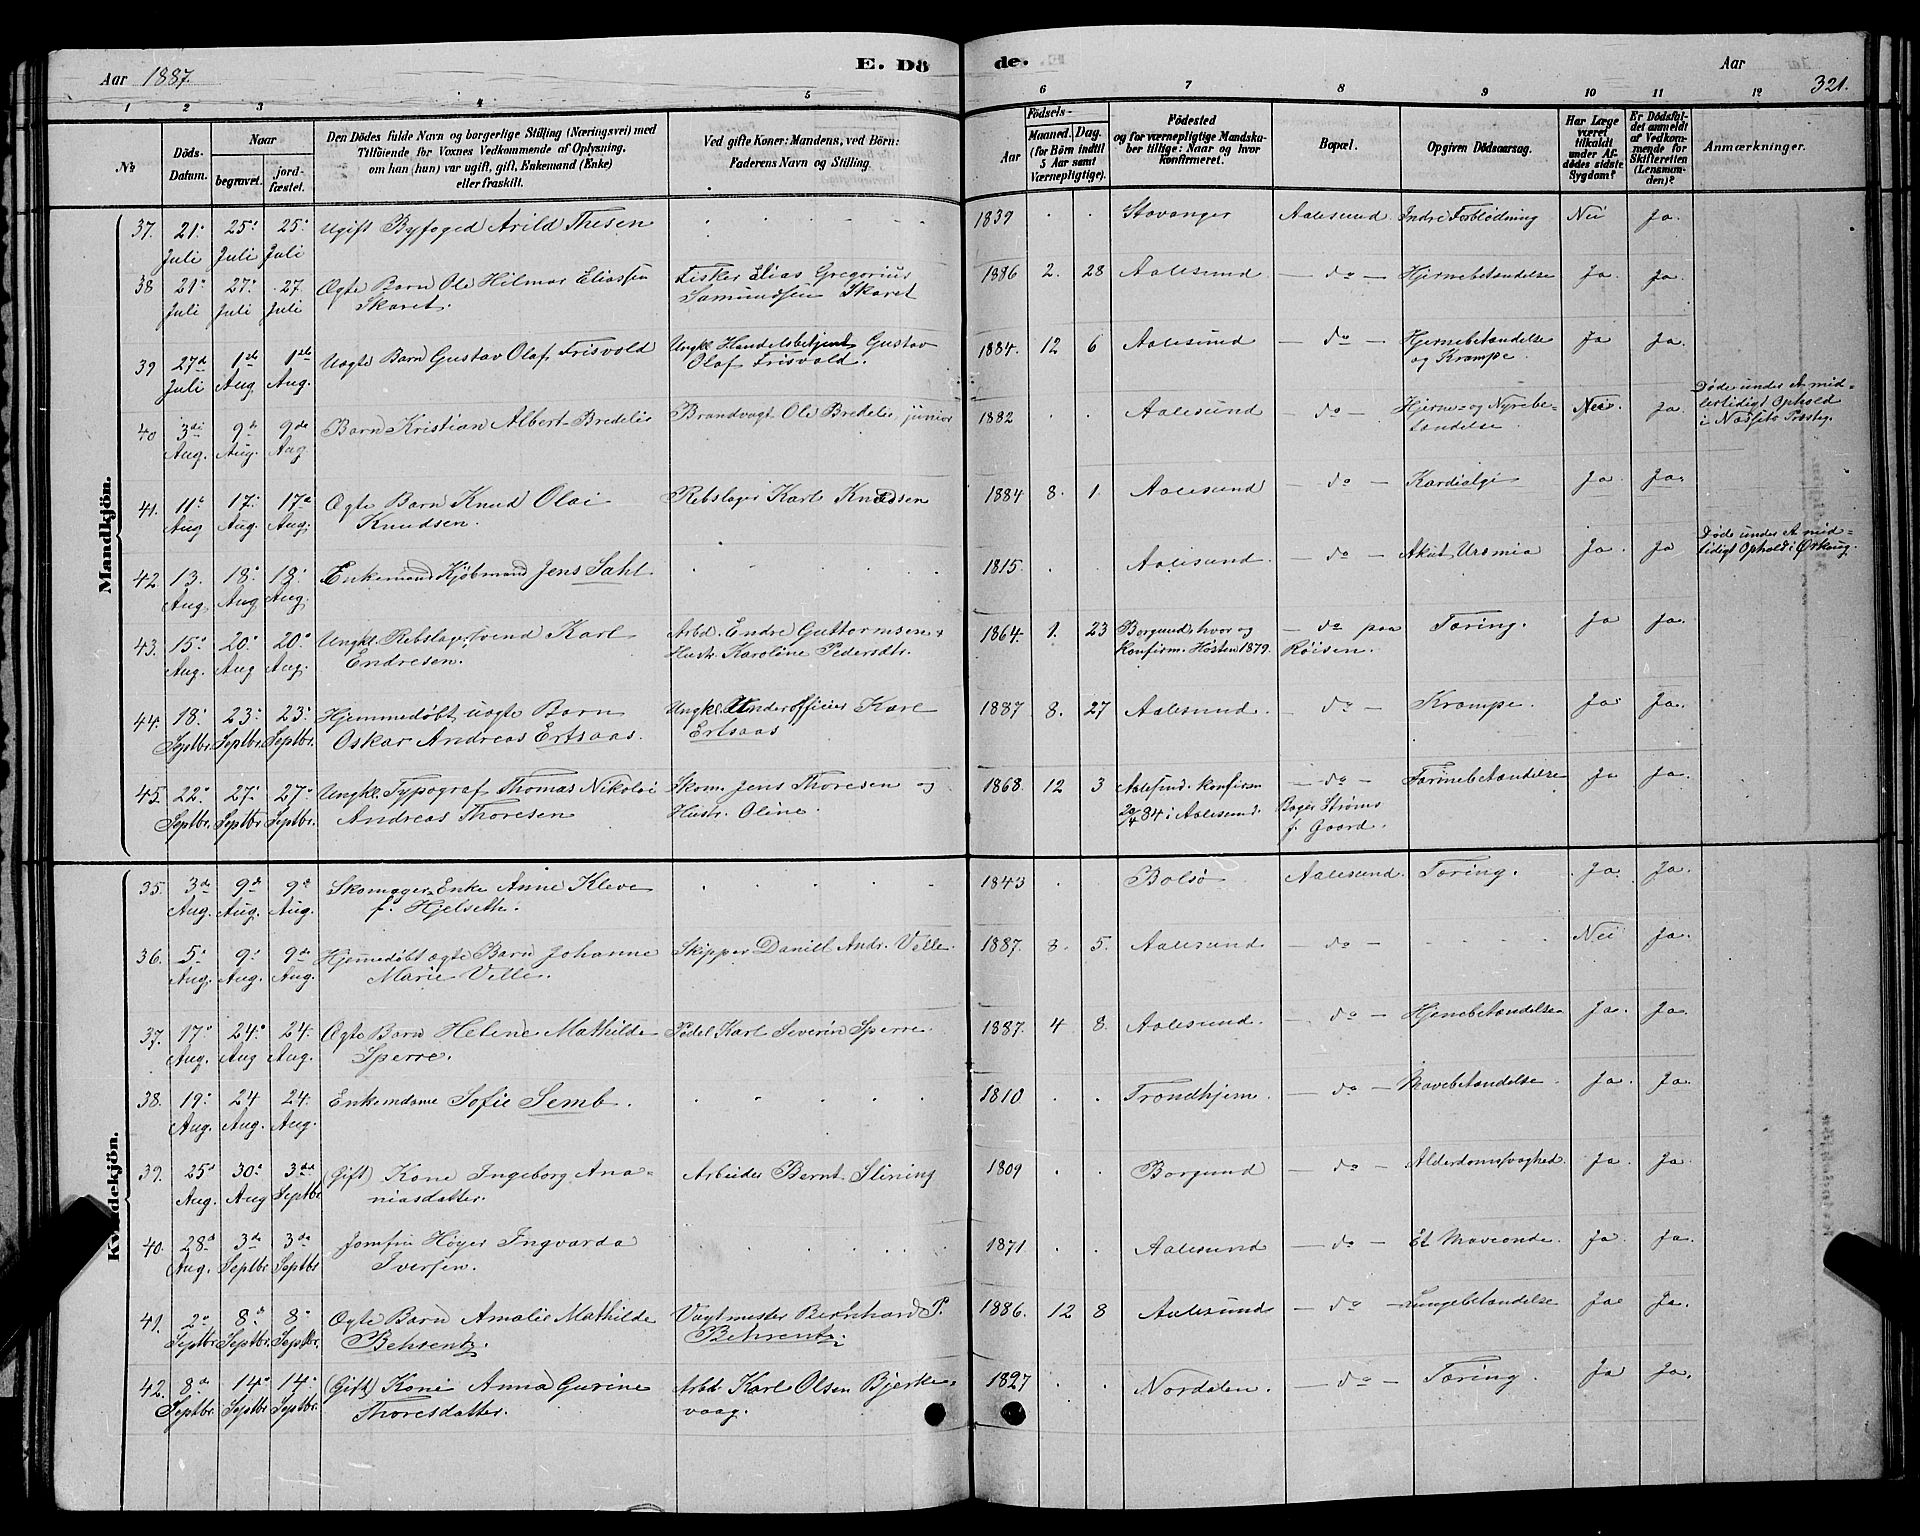 Aar 1887.
E. Dö
de.
Aar
321.
1 2 3 4 5 6 7 8 9 10 11 12
No
Döds-
Datum.
Naar
begravet.
jord-
fæstet.
Den Dödes fulde Navn og borgerlige Stilling (Næringsvei) med
Tilföiende for Voxnes Vedkommende af Oplysning.
om han (hun) var ugift, gift, Enkemand (Enke)
eller fraskilt.
Ved gifte Koner: Mandens, ved Börn:
Faderens Navn og Stilling.
Födsels-
Aar
Maaned. Dag.
(for Börn indtil
5 Aar samt
Værnepligtige).
Födested
og for værnepligtige Mandska-
ber tillige: Naar og hvor
Konfirmeret.
Bopæl.
Opgiven Dödsaarsag.
Har Læge
været
tilkaldt
under Af-
dödes sidste
Sygdom?
Er Dödsfal-
det anmeldt
af Vedkom-
mende for
Skifteretten
(Lensman-
den)?
Anmærkninger.
Mandkjön.
37. 21. Juli 25. Juli 25. Juli Ugift Byfoged Arild Thesen 1839 Stavanger Aalesund Indre Forblödning Nei Ja.
38 21. Juli 27. Juli 27. Juli Ægte Barn Ole Hilmar Eliassen
Skaret.
Fisker Elias Gregorius
Samundsen Skaret
1886 2. 28 Aalesund do Hjernebetændelse Ja Ja.
39 27de Juli 1ste Aug 1ste Aug. Uægte Barn Gustav Olaf Frisvold
Ungkl. Handelsbetjent Gustav
Olaf Frisvold.
1884. 12 6 Aalesund do Hjernebetændelse
og Krampe.
Ja Ja.
40 3di Aug. 9de Aug. 9de Aug Barn Kristian Albert Bredeli
Brandvagt Ole Bredeli junior
1882 Aalesund do Hjerne- og Nyrebe-
tændelse.
Nei Ja.
Döde under et mid-
lertidigt Ophold
i Præstg.
41. 11. Aug 17. Aug. 17. Aug. Ægte Barn Knud Olai
Knudsen.
Rebslager Karl Knudsen
1884 8. 1. Aalesund do Kardialgi Ja Ja.
42 13. Aug. 18. Aug 18. Aug. Enkemand Kjöbmand Jens Sahl. 1815. Aalesund. do Akut Uræmia Ja. Ja
Döde under et mid-
tidigt Ophold i Örskoug.
43. 15. Aug 20. Aug 20. Aug. Ungkl. Rebslagersvend Karl
Endresen.
Arbd. Endre Guttormsen
Hustr. Karoline Pedersdtr.
1864. 1. 23 Borgund, hvor og
konfirm. Hösten 1879.
do paa
Röisen.
Tæring. Ja Ja.
44. 18. Septbr. 23. Septbr. 23. Septbr. Hjemmedöbt uægte Barn
Oskar Andreas Ertsaas.
Ungkl. Underofficier Karl
Ertsaas
1887 8. 27 Aalesund. do Krampe. Ja Ja.
45. 22. Septbr. 27. Septbr 27. Septbr. Ungkl. Typograf Thomas Nikolai
Andreas Thoresen
Skom. Jens Thoresen og
Hustr. Oline.
1868. 12 3 Aalesund. konfirm
20/4 84 i Aalesund.
do
Bager Ströms
Gaard.
Tarmebetændelse Ja Ja.
Kvindekjön.
35. 3de Aug. 9de Aug. 9de Aug. Skomager Enke Anne Kleve
f. Hjelseth. 1843 Bolsö Aalesund. Tæring. Ja. Ja.
36. 5. Aug. 9. Aug. 9de Aug. Hjemmedöbt ægte Barn Johanne
Marie Velle.
Skipper Daniel Andr. Velle.
1887. 8. 5. Aalesund do Nei Ja.
37. 17. Aug. 24. Aug 24. Aug. Ægte Barn Helene Mathilde
Sperre.
Pedel Karl Severin Sperre.
1887. 4 8. Aalesund. do Hjernebetændelse Ja. Ja
38. 19. Aug. 24 Aug. 24. Aug. Enkemadame Sofie Semb. 1810 Trondhjem. do Mavebetændelse. Ja. Ja.
39. 25. Aug. 30. Aug 3die Septbr (Gift) Kone Ingeborg Ana-
niasdatter.
Arbeider Bernt Slining
1809 Borgund do Alderdomssvaghed. Ja. Ja
40. 28. Aug. 3de Septbr 3de Septbr Jomfru Höyer Ingvarda
Iversen.
1871 Aalesund do Et Maveonde. Ja. Ja.
41. 2. Septbr 8. Septbr. 8. Septbr. Ægte Barn Amalie Mathilde
Behrentz.
Vagtmester Bernhard P.
Behrentz.
1886. 12 8 Aalesund do Lungebetændelse Ja Ja.
42. 8. Septbr. 14. Septbr 14. Septbr. (Gift) Kone Anna Gurine
Thoresdatter.
Arbd. Karl Olsen Bjerke-
vaag.
1827 Nordalen. do Tæring. Ja Ja.